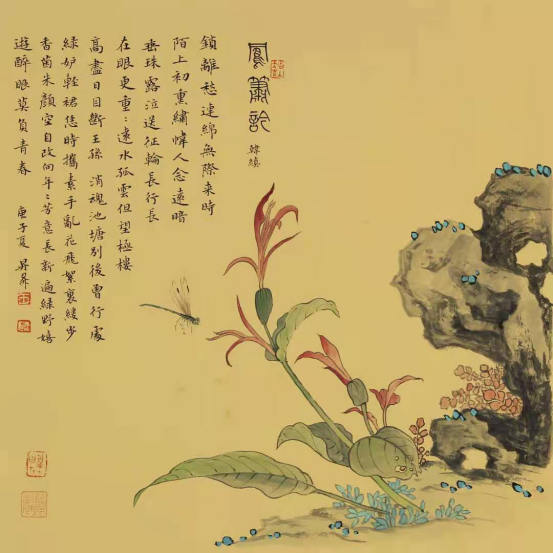 鳳蕭訡
韓縝
鎖離愁連綿無際來時
陌上初熏繡幃人念遠暗
垂珠露泣送征輪長行長
在眼更重:遠水孤雲但望極樓
高盡日目斷王孫 消魂池塘別後曾行處
綠妒輕裙恁時攜素手亂花飛絮裏緩步
香茵朱顏空自改向年:芳意長新遍綠野嬉
遊醉眼莫負青春 庚子夏